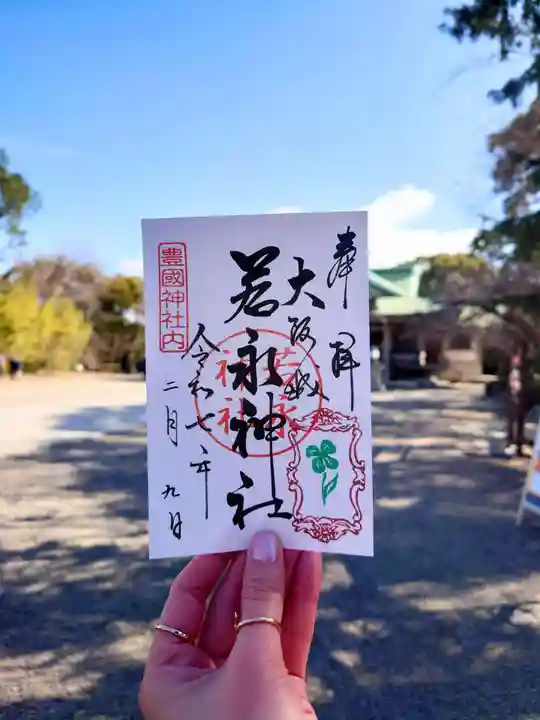 奉拝
大阪城
若永神社
若永神社
豊國神社内
令和七年
二月九日